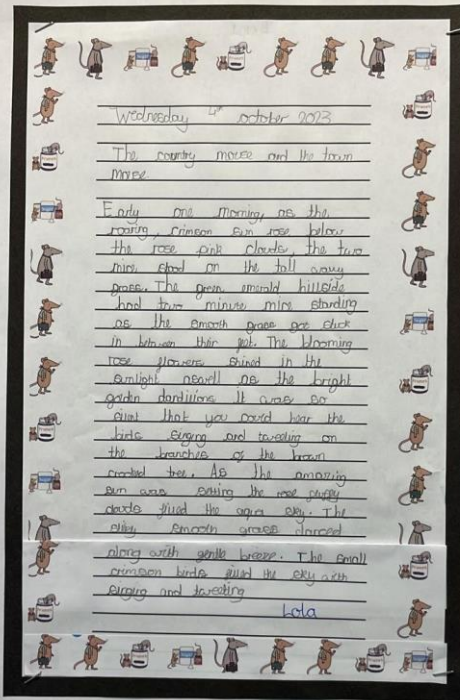 Wednesday 4th october 2023
The country mouse and the town
mouse
Early one morning, as the
roaring, crimson sun rose below
the rose pink clouds, the two
mice stood on the tall wavy
grass. The green emerald hillside
had two minute mice standing
as the smooth grass got stuck
in between their feet. The blooming
rose flowers shined in the
sunlight aswell as the bright
golden dandilions It was so
silent that you could hear the
birds singing and tweeting on
the branches of the brown
crooked tree. As the amazing
sun was setting the rose
clouds filled the sky. The
smooth grass danced
along with gentle breeze. The small
crimson birds filled the sky with
singing and tweeting
Lola